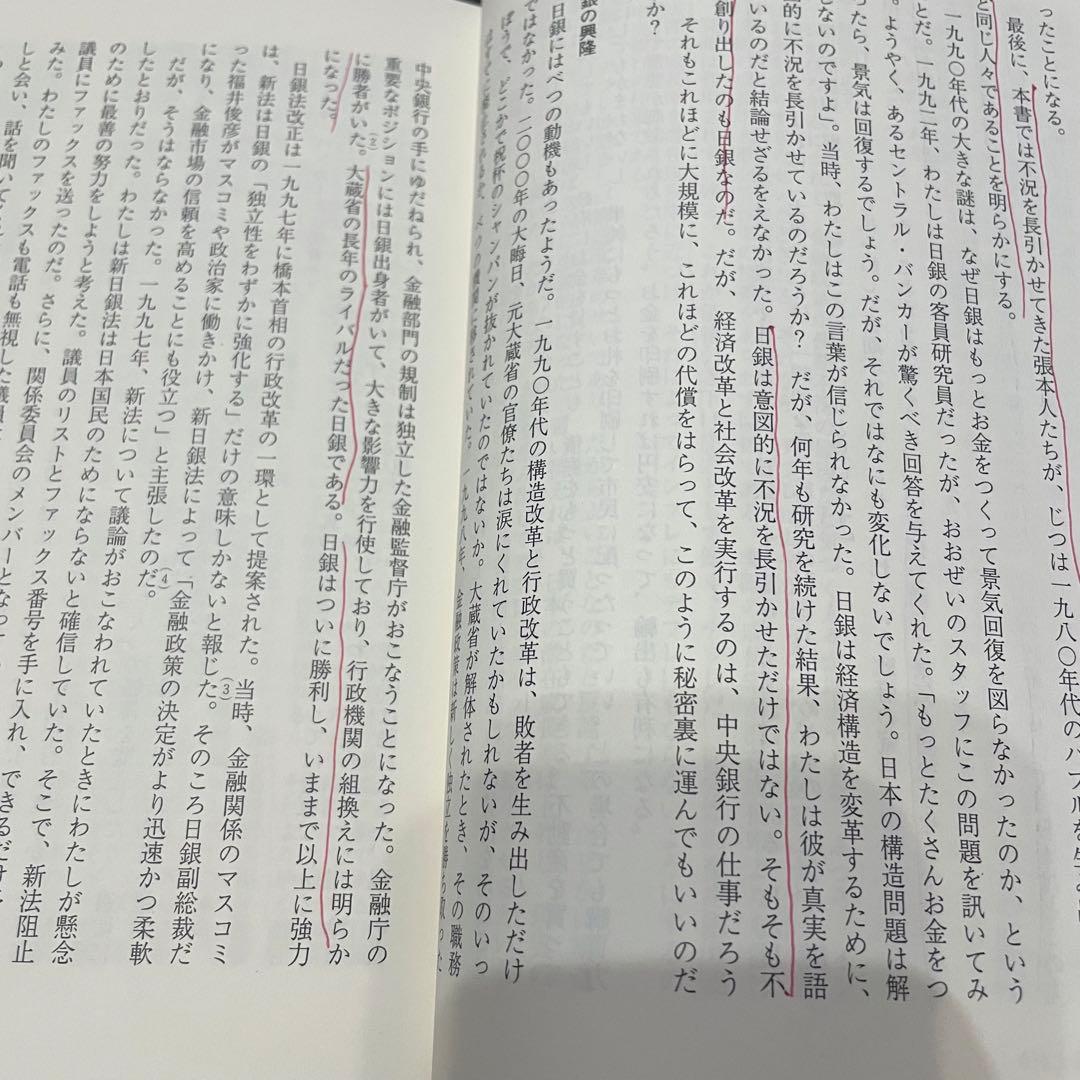 ったことになる。
最後に、本書では不況を長引かせてきた張本人たちが、じつは一九八〇年代のバブルを
と同じ人々であることを明らかにする。
一九九〇年代の大きな謎は、なぜ日銀はもっとお金をつくって景気回復を図らなかったのか、という
とだ。一九九二年、わたしは日銀の客員研究員だったが、おおぜいのスタッフにこの問題を訊いてみ
。ようやく、あるセントラル・バンカーが驚くべき回答を与えてくれた。「もっとたくさんお金をつ
ったら、景気は回復するでしょう。だが、それではなにも変化しないでしょう。日本の構造問題は解
しないのですよ」。当時、わたしはこの言葉が信じられなかった。日銀は経済構造を変革するために、
的に不況を長引かせているのだろうか？ だが、何年も研究を続けた結果、わたしは彼が真実を語
いるのだと結論せざるをえなかった。日銀は意図的に不況を長引かせただけではない。そもそも不
創り出したのも日銀なのだ。だが、経済改革と社会改革を実行するのは、中央銀行の仕事だろう
それもこれほどに大規模に、これほどの代償をはらって、このように秘密裏に運んでもいいのだ
か？
銀の興隆
日銀にはべつの動機もあったようだ。一九九〇年代の構造改革と行政改革は、敗者を生み出しただけ
ではなかった。二〇〇〇年の大晦日、元大蔵省の官僚たちは涙にくれていたかもしれないが、そのいっ
ぽうで、どこかで祝杯のシャンパンが抜かれていたのではないか。大蔵省が解体されたとき、その職務
一九九八年、金融政策は新しく独立を勝ち取った
中央銀行の手にゆだねられ、金融部門の規制は独立した金融監督庁がおこなうことになった。金融庁の
重要なポジションには日銀出身者がいて、大きな影響力を行使しており、行政機関の組換えには明らか
に勝者がいた。(2)大蔵省の長年のライバルだった日銀である。日銀はついに勝利し、いままで以上に強力
になった。
日銀法改正は一九九七年に橋本首相の行政改革の一環として提案された。当時、金融関係のマスコミ
は、新法は日銀の「独立性をわずかに強化する」だけの意味しかないと報じた。(3)そのころ日銀副総裁だ
った福井俊彦がマスコミや政治家に働きかけ、新日銀法によって「金融政策の決定がより迅速かつ柔軟
になり、金融市場の信頼を高めることにも役立つ」と主張したのだ。(4)
だが、そうはならなかった。一九九七年、新法について議論がおこなわれていたときにわたしが懸念
したとおりだった。わたしは新日銀法は日本国民のためにならないと確信していた。そこで、新法阻止
のために最善の努力をしようと考えた。議員のリストとファックス番号を手に入れ、できるだけ
議員にファックスを送ったのだ。さらに、関係委員会のメンバーとなって
みた。わたしのファックスも電話も無視した議員
しと会い、話を聞いて